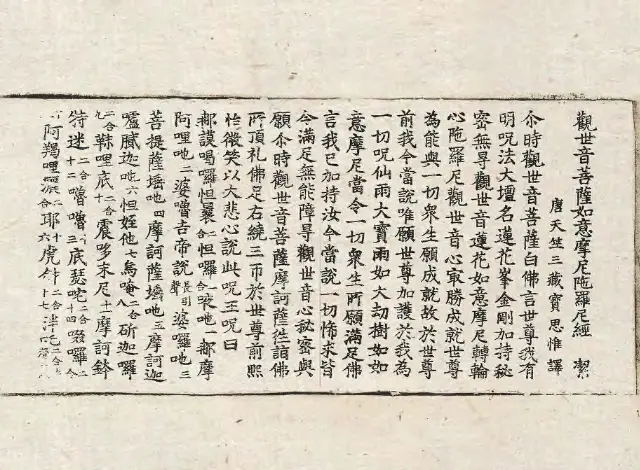 觀世音菩薩如意摩尼陁羅尼經 潔
唐天竺三藏寶思惟譯
尒時觀世音菩薩白佛言世尊我有
明呪法大壇名蓮花峯金剛加持秘
密无㝵觀世音蓮花如意摩尼轉輪
心陁羅尼觀世音心冣勝成就世尊
為能與一切衆生願成就故於世尊
前我今當說唯願世尊加護於我為
一切呪仙雨大寶雨如大劫樹如如
意摩尼當令一切衆生所願滿足佛
言我已加持汝今當說一切悕求皆
今滿足無能障㝵觀世音心秘密與
願尒時觀世音菩薩摩訶薩徃詣佛
所頂礼佛足右繞三帀於世尊前熈
怡微笑以大悲心說此呪王呪曰
那謨曷囉怛曩二合怛囉二合夜吔一那摩
阿哩吔二婆嚕吉帝說長引聲婆囉吔三
菩提薩埵吔四摩訶薩埵吔五摩訶迦
嚧膩迦吔六怛姪他七烏唵八斫迦囉
二合九靺哩底十二合震哆末尼十一摩訶鉢
特迷十二二合嚕嚕十三底瑟吒十四二合囉二
阿羯哩灑二合耶十六虎𤙖二合十七